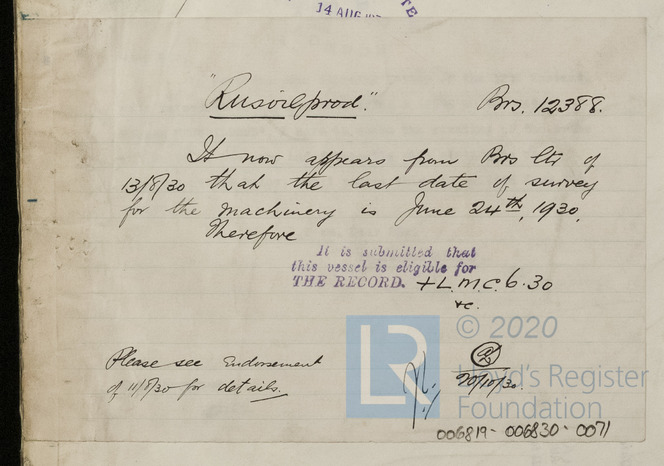 14 AUG
TE
"Rusoilprod".
Brs. 12388.
It now appears from Brs ltr of
13/8/30 that the last date of survey
for the machinery is June 24th, 1930,
Therefore
It is submitted that
this vessel is eligible for
THE RECORD. + L.M.C. 6.30
&c.
Please see Endorsement
of 11/8/30 for details.
20/10/30
LR
© 2020
Lloyd's Register
Foundation
006819-006830-0071